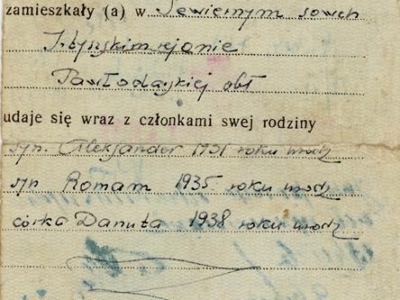 zamieszkały (a) w Sewiernym sowch
Irtyszskim rejonie
Pawłodarskiej obł
udaje się wraz z członkami swej rodziny
syn. Aleksander 1931 roku urodz
syn Roman 1935 roku urodz
córka Danuta 1938 roku urodz